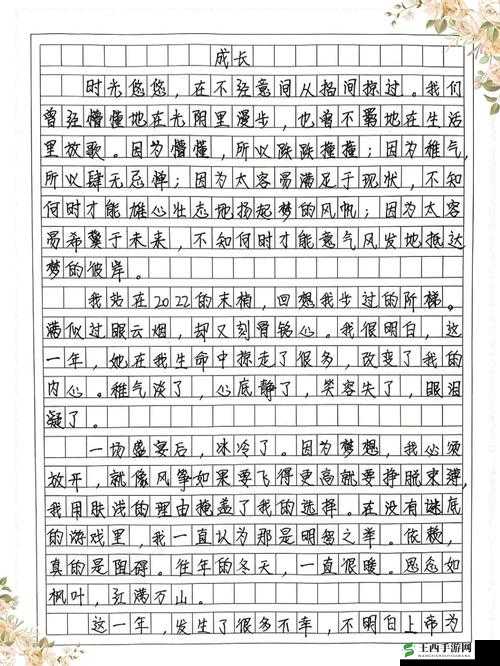 成长
时光悠悠，在不经意间从指间掠过。我们
曾经懵懂地在光阴里漫步，也曾不羁地在生活
里放歌。因为懵懂，所以跌跌撞撞；因为稚气，
所以肆无忌惮；因为太容易满足于现状，不知
何时才能雄心壮志地扬起梦的风帆；因为太容
易希冀于未来，不知何时才能意气风发地抵达
梦的彼岸。
我站在2022的末梢，回想我步过的阶梯。
满似过眼云烟，却又刻骨铭心。我很明白，这
一年，她在我生命中掠走了很多，改变了我的
内心。稚气淡了，心底静了，笑容失了，眼泪
凝了。
一场盛宴后，冰冷了。因为梦想，我必须
放开，就像风筝如果要飞得更高就要挣脱束缚，
我用肤浅的理由掩盖了我的选择。在没有谜底
的游戏里，我一直认为那是明智之举。依赖，
真的是阻碍。往年的冬天，一直很暖。思念如
枫叶，红满万山。
这一年，发生了很多不幸，不明白上帝为
土西手游网